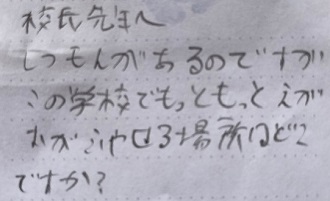 校長先生へ
しつもんがあるのですが
この学校でもっともっとえが
おがふやせる場所はどこ
ですか?